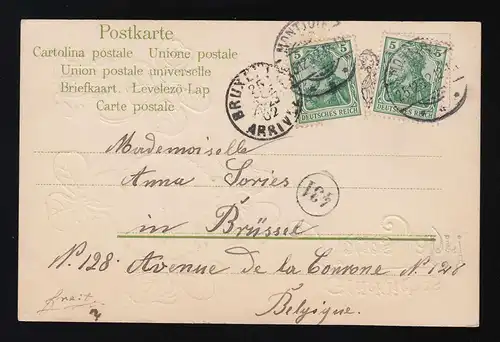 Postkarte
Cartolina postale Unione postale
Union postale universelle
Briefkaart. Levelezö-Lap
Carte postale
MONTJOIE
5 5
DEUTSCHES REICH
DEUTSCHES REICH
BRUXELLES
ARRIVÉE
431
Mademoiselle
Anna Sories
in Brüssel
N. 128. Avenue de la Couronne N. 128
Belgique.